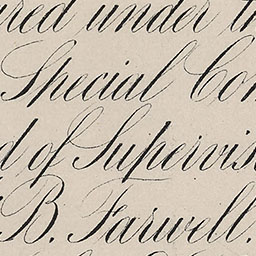 ured under th
Special Con
d of Supervis
B. Farwell.